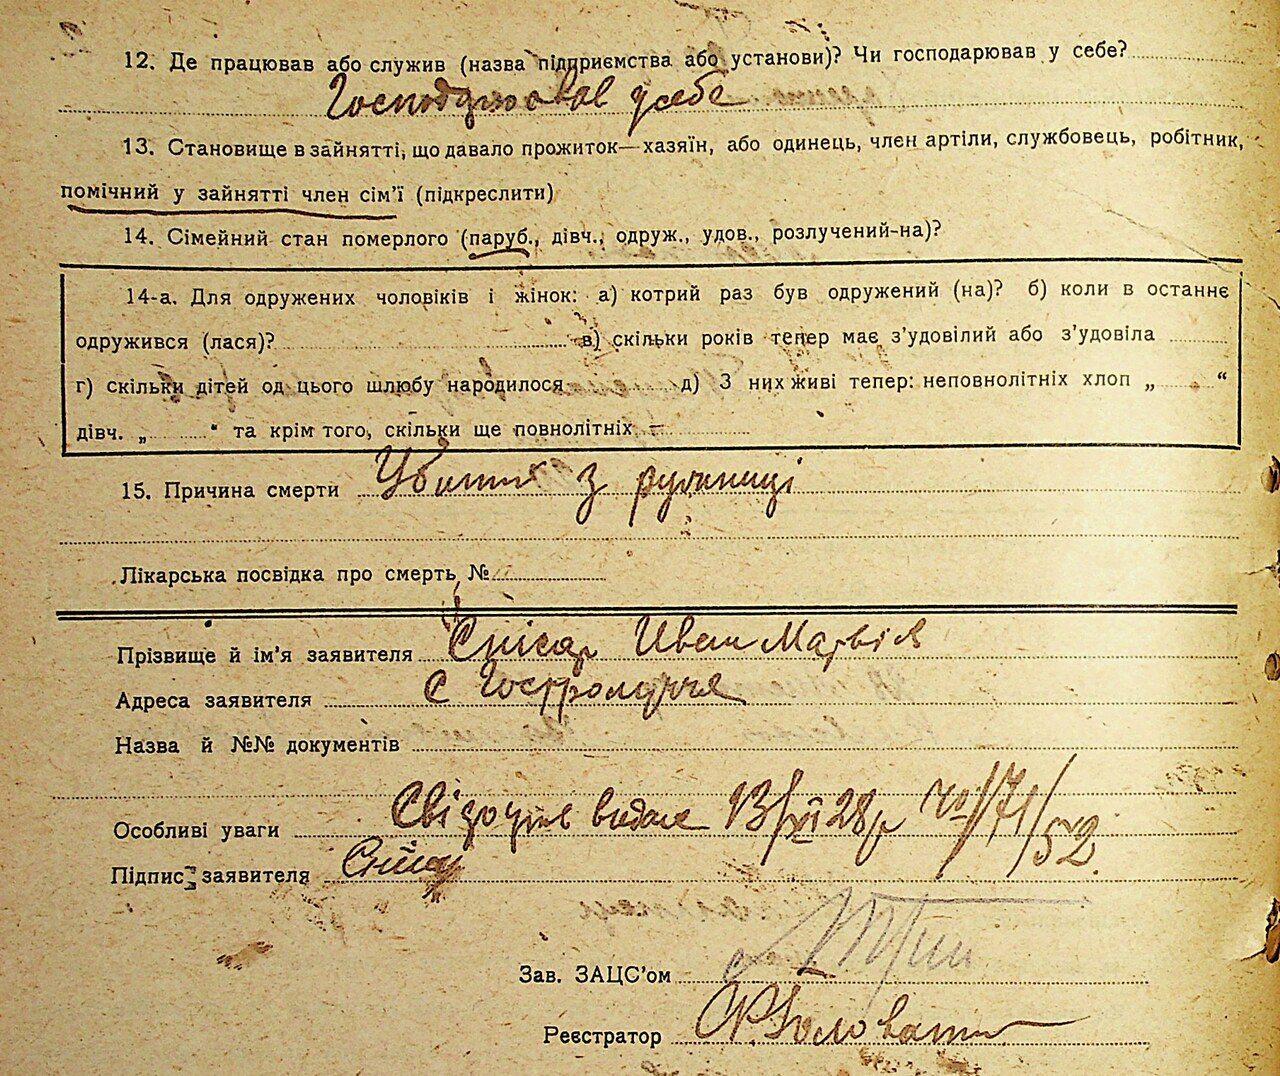 12. Де працював або служив (назва підприємства або установи)? Чи господарював у себе?
Господарював у себе
13. Становище в зайнятті, що давало прожиток—хазяїн, або одинець, член артіли, службовець, робітник,
помічний у зайнятті член сім'ї (підкреслити)
14. Сімейний стан померлого (паруб., дівч., одруж., удов., розлучений-на)?
14-а. Для одружених чоловіків і жінок: а) котрий раз був одружений (на)? б) коли в останнє
одружився (лася)? в) скільки років тепер має з'удовілий або з'удовіла
г) скільки дітей од цього шлюбу народилося д) З них живі тепер: неповнолітніх хлоп „ “
дівч. „ “ та крім того, скільки ще повнолітніх —
15. Причина смерти Убитий з рушниці
Лікарська посвідка про смерть №
Прізвище й ім'я заявителя Снісар Иван
Адреса заявителя С Гостролуччя
Назва й №№ документів
Особливі уваги видане 13/XII 28р № /71/52
Підпис заявителя
Зав. ЗАЦС'ом
Реєстратор